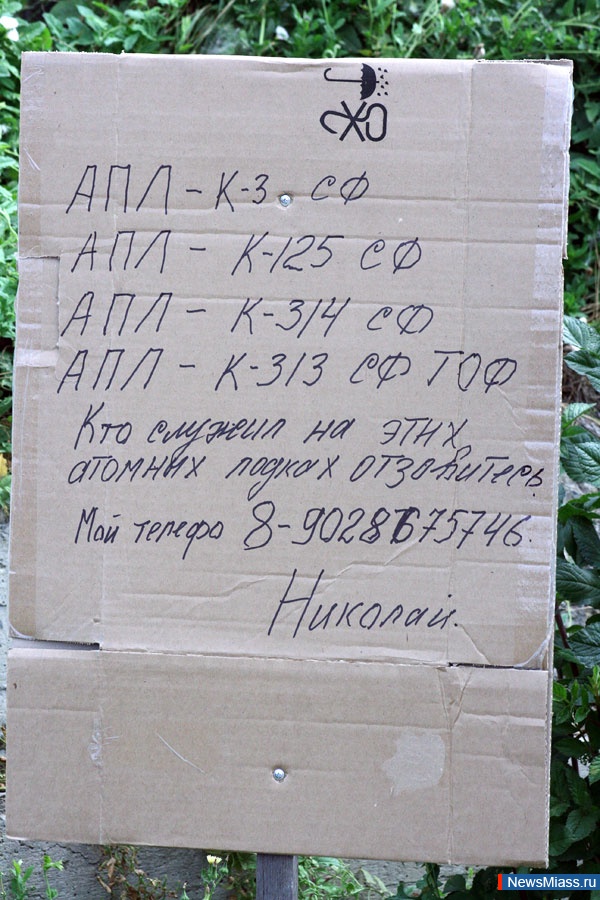 АПЛ - К-3 СФ
АПЛ - К-125 СФ
АПЛ - К-314 СФ
АПЛ - К-313 СФ ТОФ
Кто служил на этих
атомних лодках отзовитесь
Мой телефо 8-9028675746.
Николай.
NewsMiass.ru